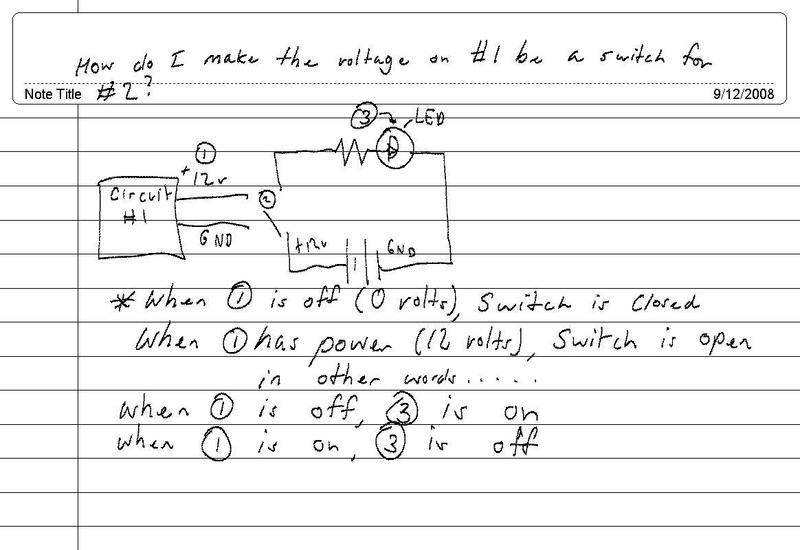 How do I make the voltage on #1 be a switch for
Note Title #2? 9/12/2008
3 LED
1
+12v
Circuit
#1
2
GND
+12v GND
* When 1 is off (0 volts), Switch is Closed
When 1 has power (12 volts), Switch is open
in other words.....
when 1 is off, 3 is on
when 1 is on, 3 is off